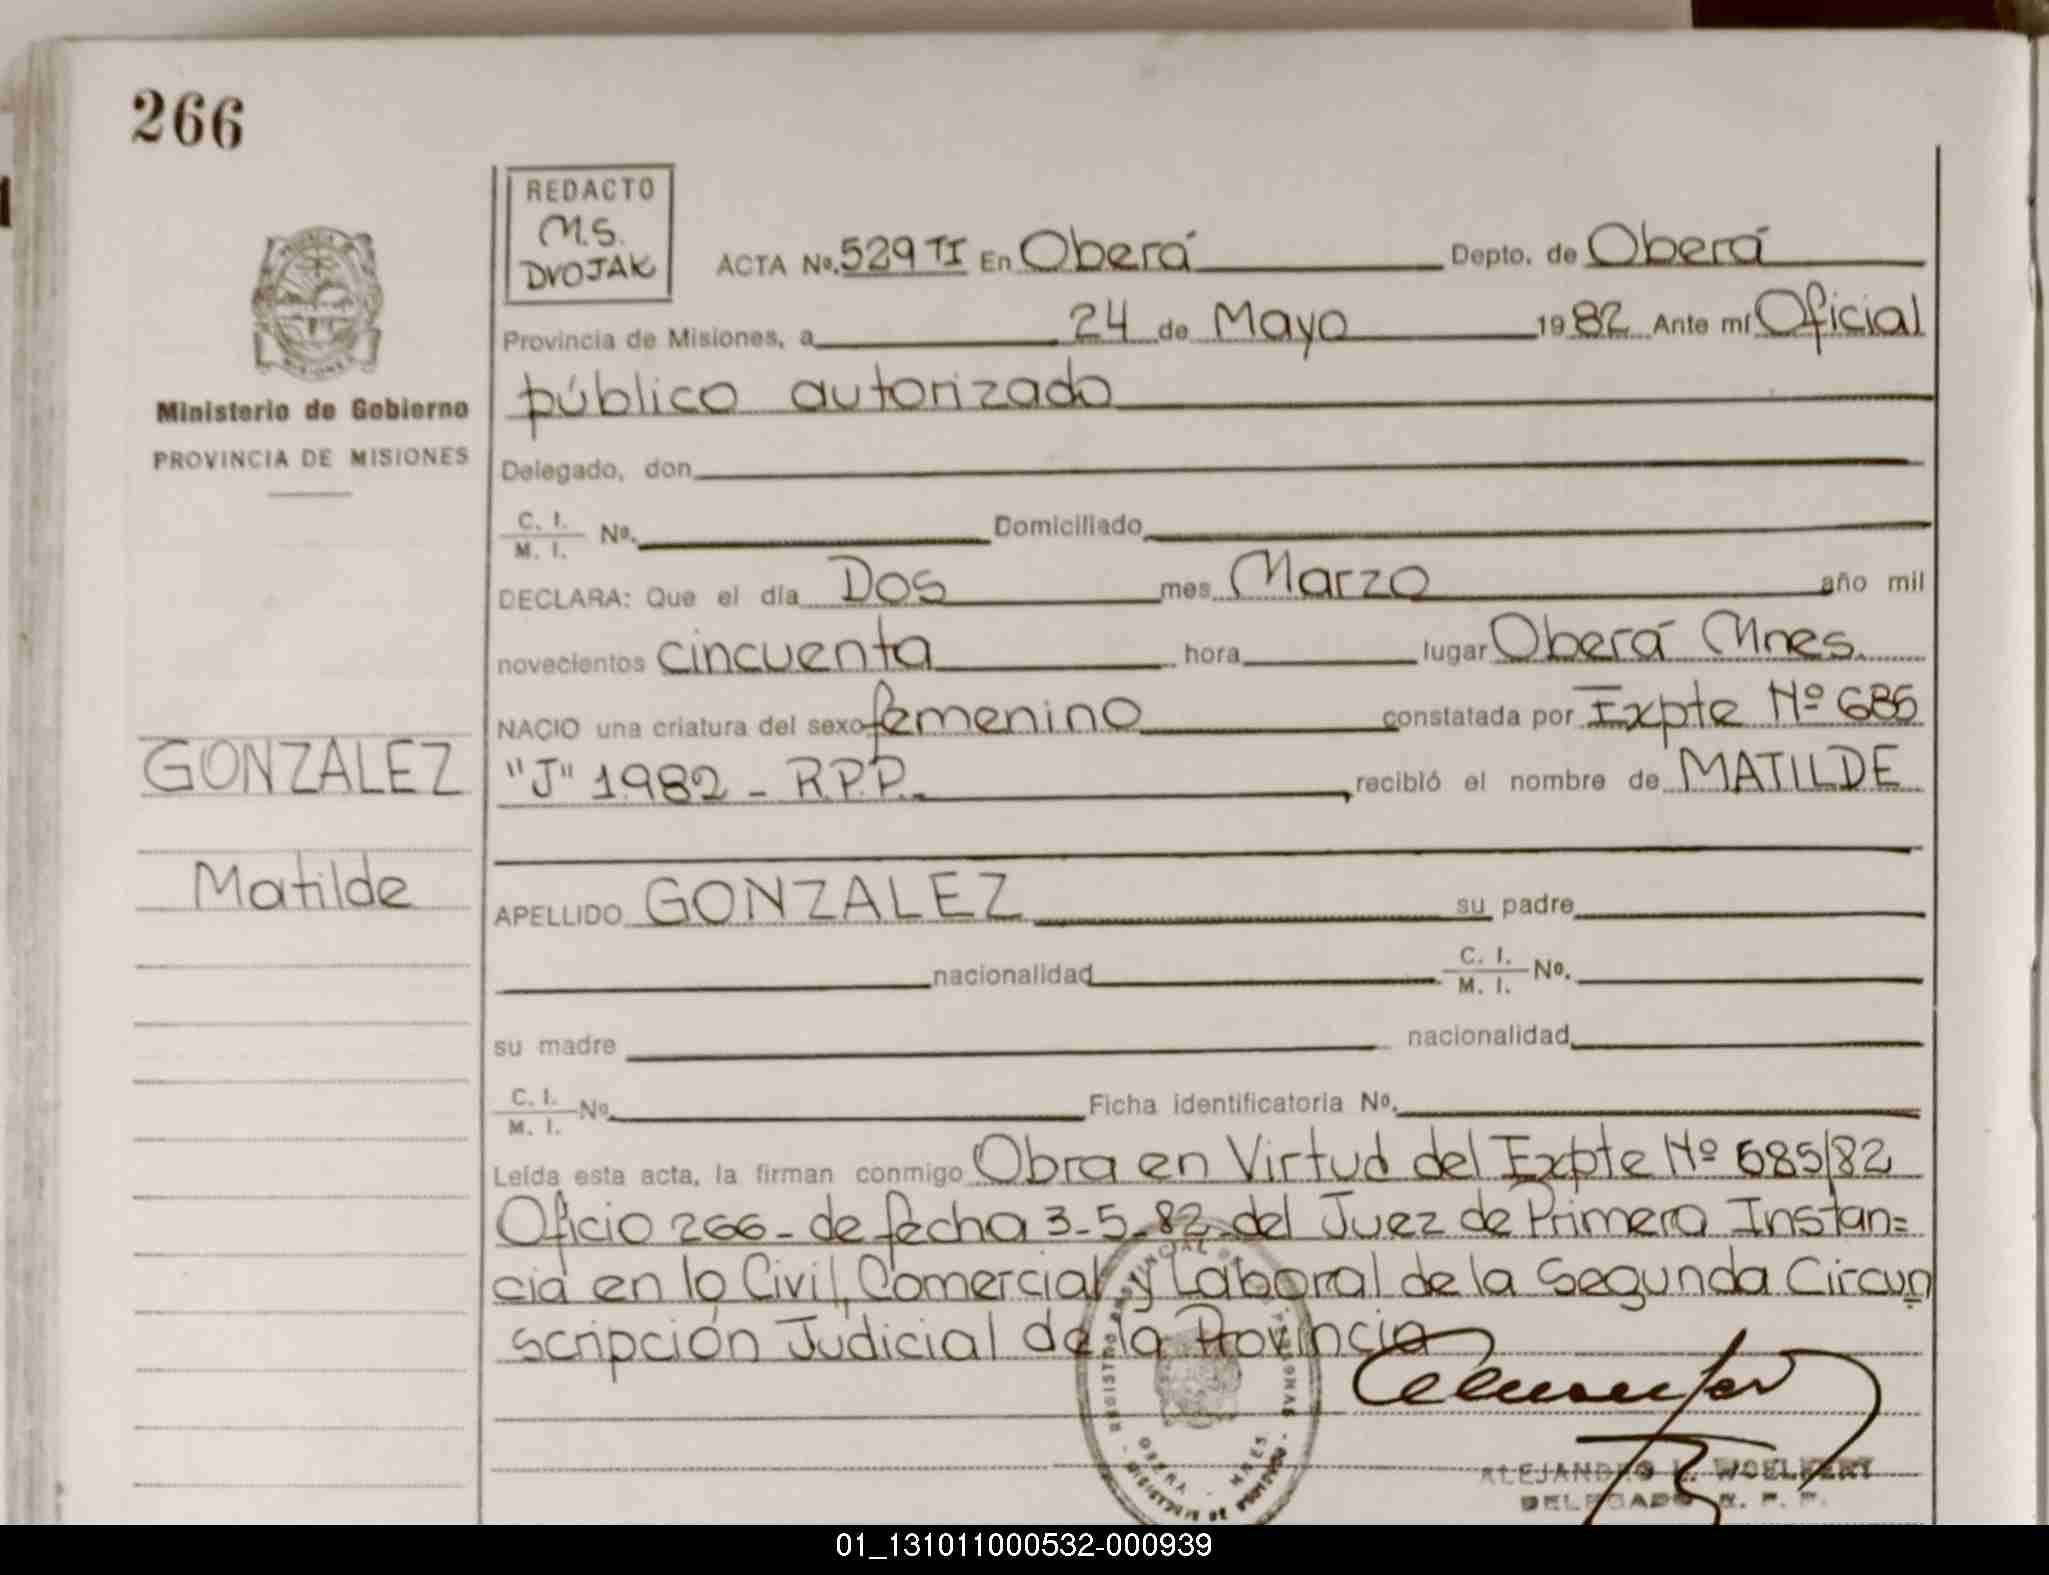 266
REDACTO
M.S.
DVOJAK
ACTA No. 529 TI En Oberá Depto. de Oberá
Provincia de Misiones, a 24 de Mayo 1982 Ante mí Oficial
público autorizado
Ministerio de Gobierno
PROVINCIA DE MISIONES
Delegado, don
C. I.
M. I. No. Domiciliado
DECLARA: Que el día Dos mes Marzo año mil
novecientos cincuenta hora lugar Oberá Mnes.
NACIO una criatura del sexo femenino constatada por Expte Nº 685
"J" 1982 - R.P.P. recibió el nombre de MATILDE
GONZALEZ
Matilde
APELLIDO GONZALEZ su padre
nacionalidad C. I.
M. I. No.
su madre nacionalidad
C. I.
M. I. No Ficha identificatoria No.
Leída esta acta, la firman conmigo Obra en Virtud del Expte Nº 685/82
Oficio 266 - de fecha 3-5-82 del Juez de Primera Instan=
cia en lo Civil, Comercial y Laboral de la Segunda Circun
scripción Judicial de la Provincia
REGISTRO PROVINCIAL DE LAS PERSONAS
OBERA - MNES.
ALEJANDRO L. WOELFERT
DELEGADO R. P. P.
01_131011000532-000939